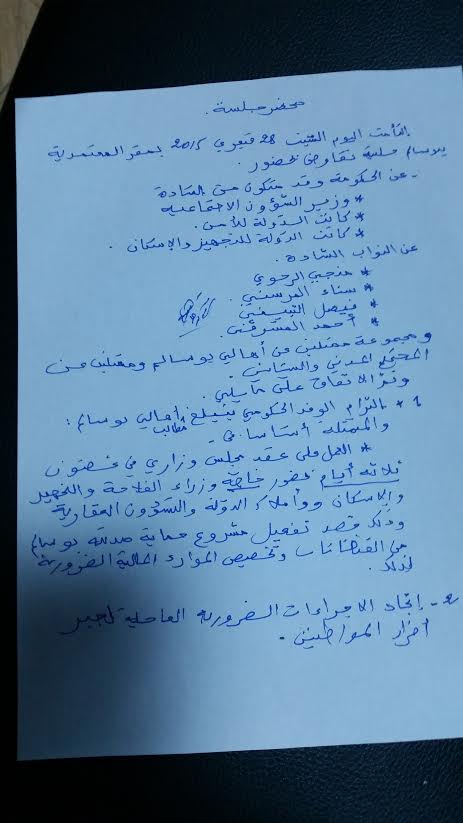 محضر جلسة.
إلتأمت اليوم السبت 28 فيفري 2015 بمقر المعتمدية
ببوسالم جلسة تفاوض بحضور.
- عن الحكومة وفد متكون من السادة
* وزير الشؤون الاجتماعية
* كاتب الدولة للأمن.
* كاتب الدولة للتجهيز والإسكان.
عن النواب السادة:
* منجي الرحوي
* سناء المرسني.
* فيصل التبيني
* أحمد المشرقي.
ومجموعة ممثلين عن أهالي بوسالم وممثلين عن
المجتمع المدني والسياسي.
وتم الاتفاق على ما يلي:
1 + التزام الوفد الحكومي بتبليغ مطالب أهالي بوسالم:
والمتمثلة أساسا في
* العمل على عقد مجلس وزاري في غضون
ثلاثة أيام بحضور خاصة وزراء الفلاحة والتجهيز
والإسكان وأملاك الدولة والشؤون العقارية
وذلك قصد تفعيل مشروع حماية مدينة بوسالم
من الفيضانات وتخصيص الموارد المالية الضرورية
لذلك.
2 - إتخاذ الاجراءات الضرورية العاجلة لجبر
أضرار المواطنين.